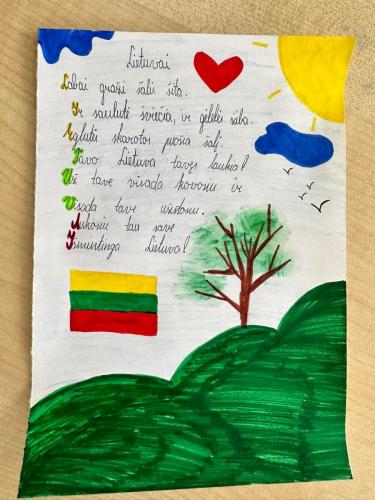 Lietuvai
Labai graži šalis šita.
Ir saulutė šviečia, ir gėlelės šalia.
Eglutės skarotos puošia šalį.
Tavo Lietuva tavęs laukia!
Už tave visada kovosiu ir
Visada tave užstosiu.
Aukosiu tau save
Išmintinga Lietuva!